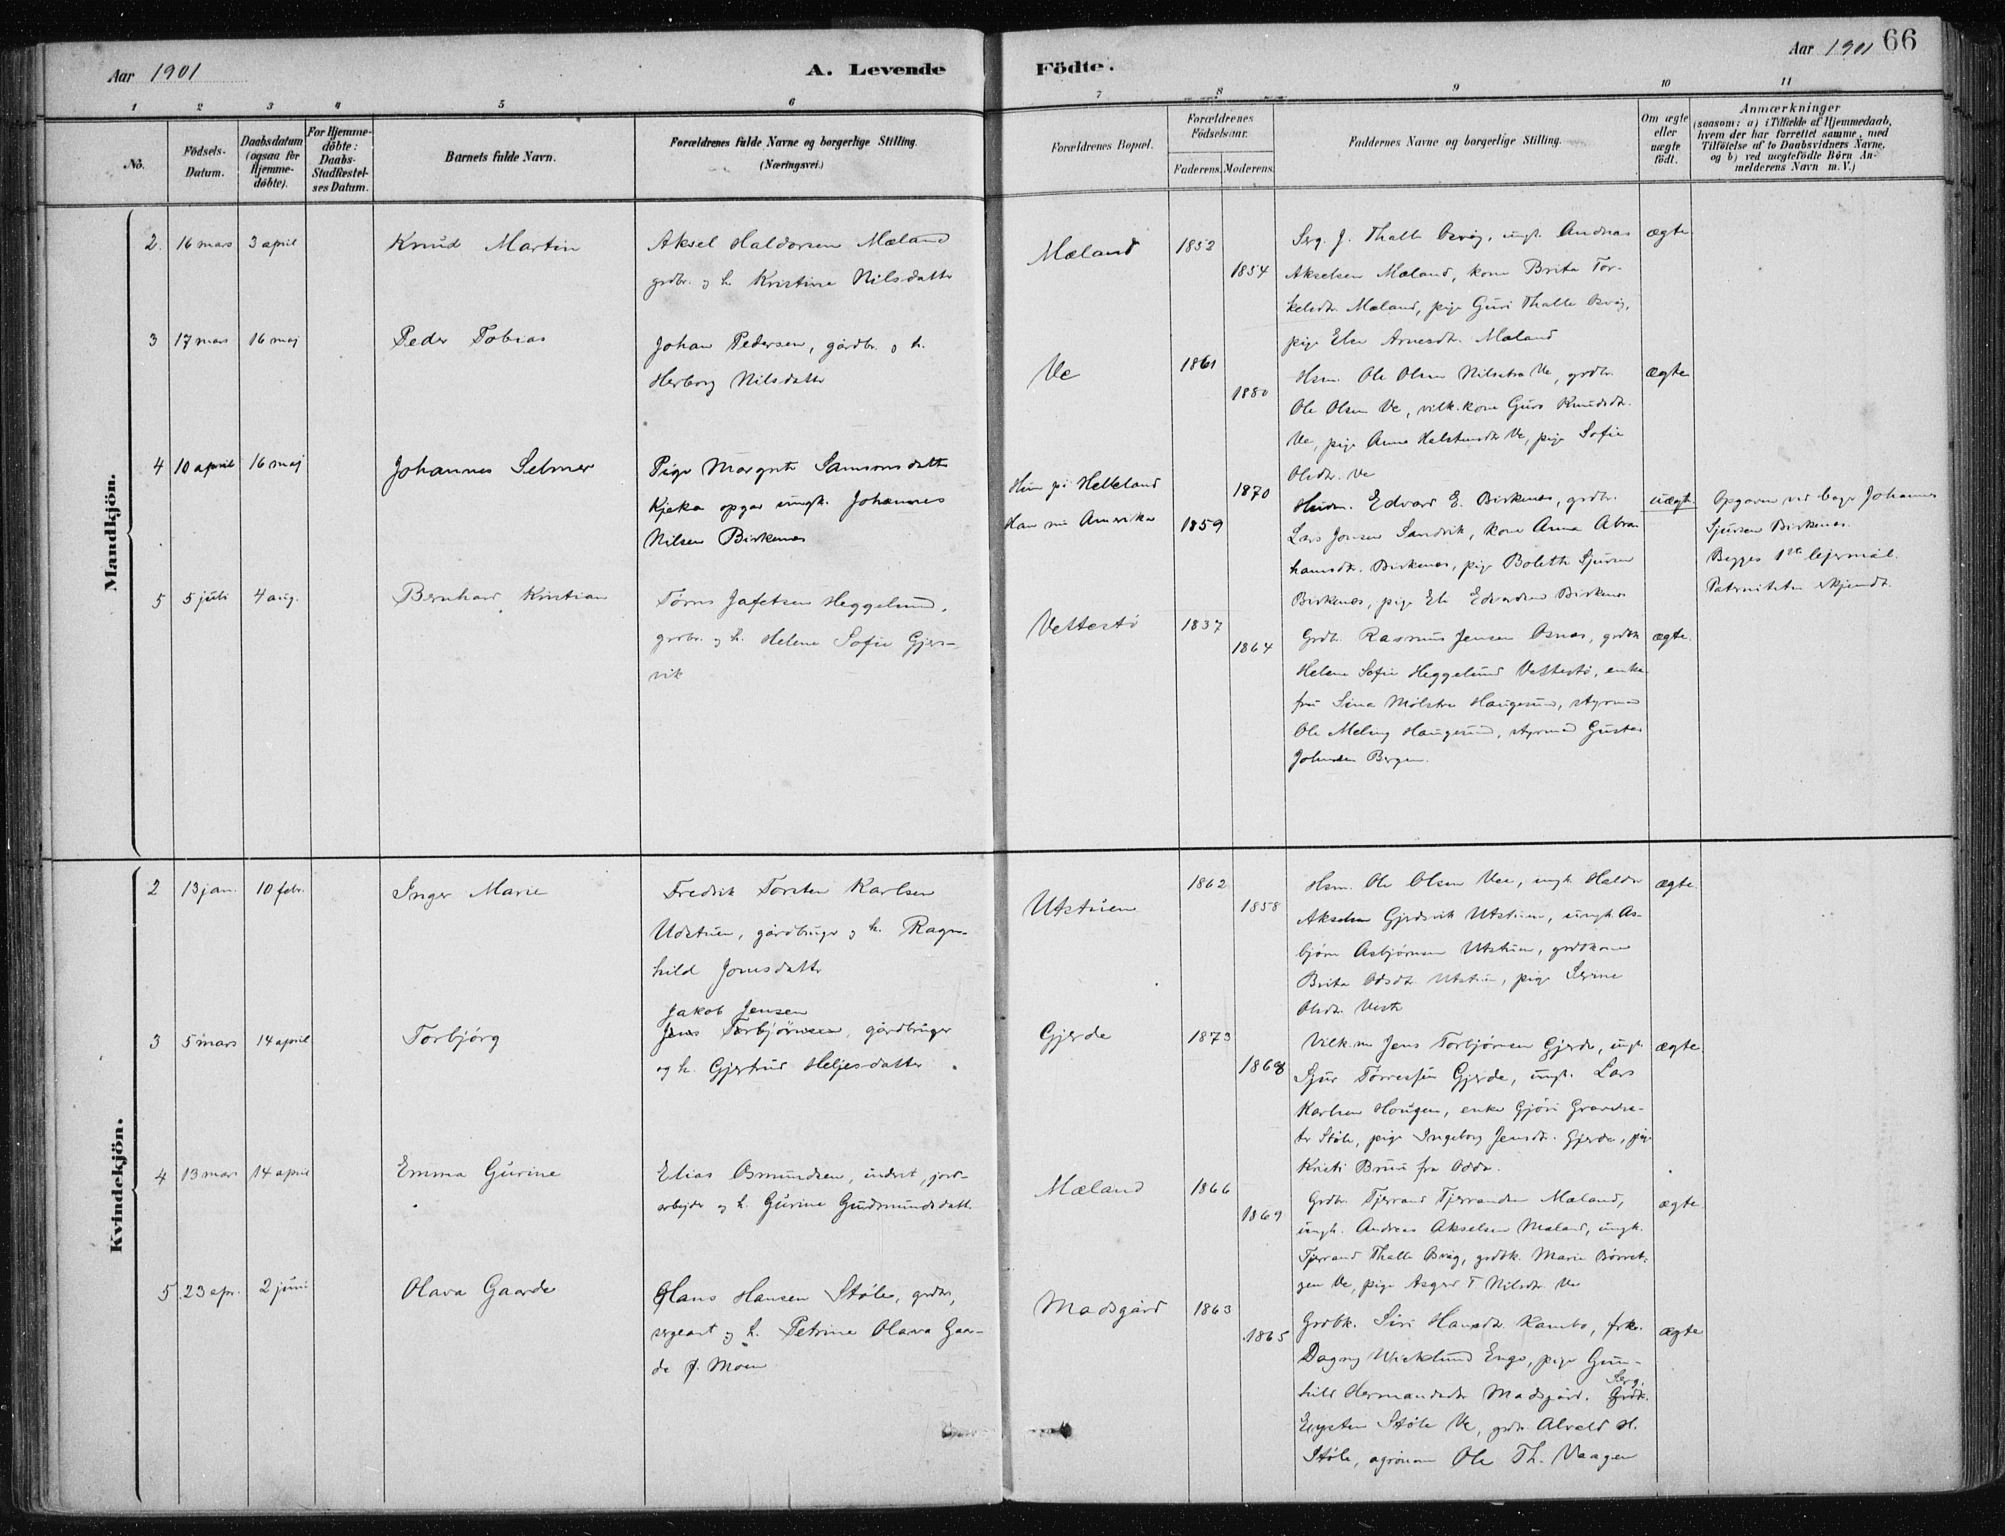 Aar 1901
A. Levende
Födte.
Aar 1901 66
1 2 3 4 5 6 7 8 9 10 11
No.
Födsels-
Datum.
Daabsdatum
(ogsaa for
Hjemme-
döbte).
For Hjemme-
döbte:
Daabs-
Stadfæstel-
ses Datum.
Barnets fulde Navn.
Forældrenes fulde Navne og borgerlige Stilling.
(Næringsvei.)
Forældrenes Bopæl.
Forældrenes
Födselsaar.
Faderens. Moderens.
Faddernes Navne og borgerlige Stilling.
Om ægte
eller
uægte
födt.
Anmærkninger
(saasom: a) i Tilfælde af Hjemmedaab,
hvem der har forrettet samme, med
Tilföielse af to Daabsvidners Navne,
og b) ved uægtefödte Börn An-
melderens Navn m. V.)
Mandkjön.
2. 16 mars 3 april
Knud Martin
Aksel Haldorsen Mæland
grdbr. og h. Kristine Nilsdatter
Mæland
1852
1854
Serg. J. Thalle Osvåg, ungk. Andreas
Akselsen Mæland, kone Brita Tor-
kelsdtr. Mæland, pige Guri Thalle Osvåg,
pige Else Arnesdtr. Mæland
ægte
3 17 mars 16 maj
Peder Tobias
Johan Pedersen, gårdbr. og h.
Herborg Nilsdatter
Ve
1861
1880
Hsm. Ole Olsen Ve, grdbr.
Ole Olsen Ve, vilk.kone Guro Knudsdt.
Ve, pige Anna Ve, pige Sofie
Olsdtr. Ve
ægte
4 10 april 16 maj
Johannes Selmer
Pige Margrete Samsonsdatter
Kjeka opgav ungk. Johannes
Nilsen Birkenes
Hun på Helleland
Han nu Amerika
1870
1859
Husm. Edvard E. Birkenes, grdbr.
Lars Jonsen Sandvik, kone Anna Abra
hamsdtr. Birkenes, pige Bolette Sjursen
Birkenes, pige Eli Edvardsen Birkenes
uægte
Opgaven ved Johannes
Sjursen Birkenes.
Begges 1ste lejermål.
Paterniteten erkjendt.
5 5 juli 4 aug.
Bernhard Kristian
Tørris Jafetsen Heggelund,
grdbr. og h. Helene Sofie Gjers-
vik
Vettestø
1837
1864
Grdb. Rasmus Jensen Osnes, grdbk.
Helene Sofie Heggelund Vettestø, enke-
fru Sina Mølstre Haugesund, styrmand
Ole Meling Haugesund, styrmand Gustav
Johnsen Bergen.
ægte.
Kvindekjön.
2 13 jan. 10 febr.
Inger Marie
Fredrik Torsten Karlsen
Udstuen, gårdbruger og h. Ragn-
hild Jonsdatter
Utstuen
1862
1858
Hsm. Ole Olsen Vee, ungk. Haldor
Akselsen Gjerdsvik Utstuen, ungk. As-
bjørn Asbjørnsen Utstuen, grdbkone
Brita Utstuen, pige Serine
Olsdtr.
ægte
3 5 mars 14 april
Torbjørg
Jakob Jensen
Jens Torbjørnsen, gårdbruger
og h. Gjertrud Heljesdatter
Gjerde
1873
1868
Vilk.m. Jens Torbjørnsen Gjerde, ungk.
Sjur Gjerde, ungk. Lars
Karlsen Hougen, enke Gjøri
Støle, pige Ingeborg Jensdtr. Gjerde, pige
Kristi Bruu fra Odda.
ægte
4 13 mars 14 april
Emma Gurine
Elias Osmundsen, inderst, jord-
arbejder og h. Gurine Gudmundsdatter
Mæland
1866
1869
Grdbr. Tjerand Tjerandsen Mæland,
ungk. Andreas Akselsen Mæland, ungk.
Tjerand Thalle Osvåg, grdbk. Marie Børret-
zen Ve, pige Nilsdtr. Ve
ægte
5 23 apr. 2 juni
Olava Gaarde
Hans Hansen Støle, grdbr,
sergeant og h. Petrine Olava Gaar-
de f. Moen
Madsgård
1863
1865
Grdbk. Siri Hansdtr. Kambo, frk.
Dagny Wicklund Enge, pige Gun-
hild Hermandsdtr Madsgård. Serg.
Grdbk.
Eysten Støle Ve, grdbr. Alvald H.
Støle, agronom Ole Th. Vaage
ægte